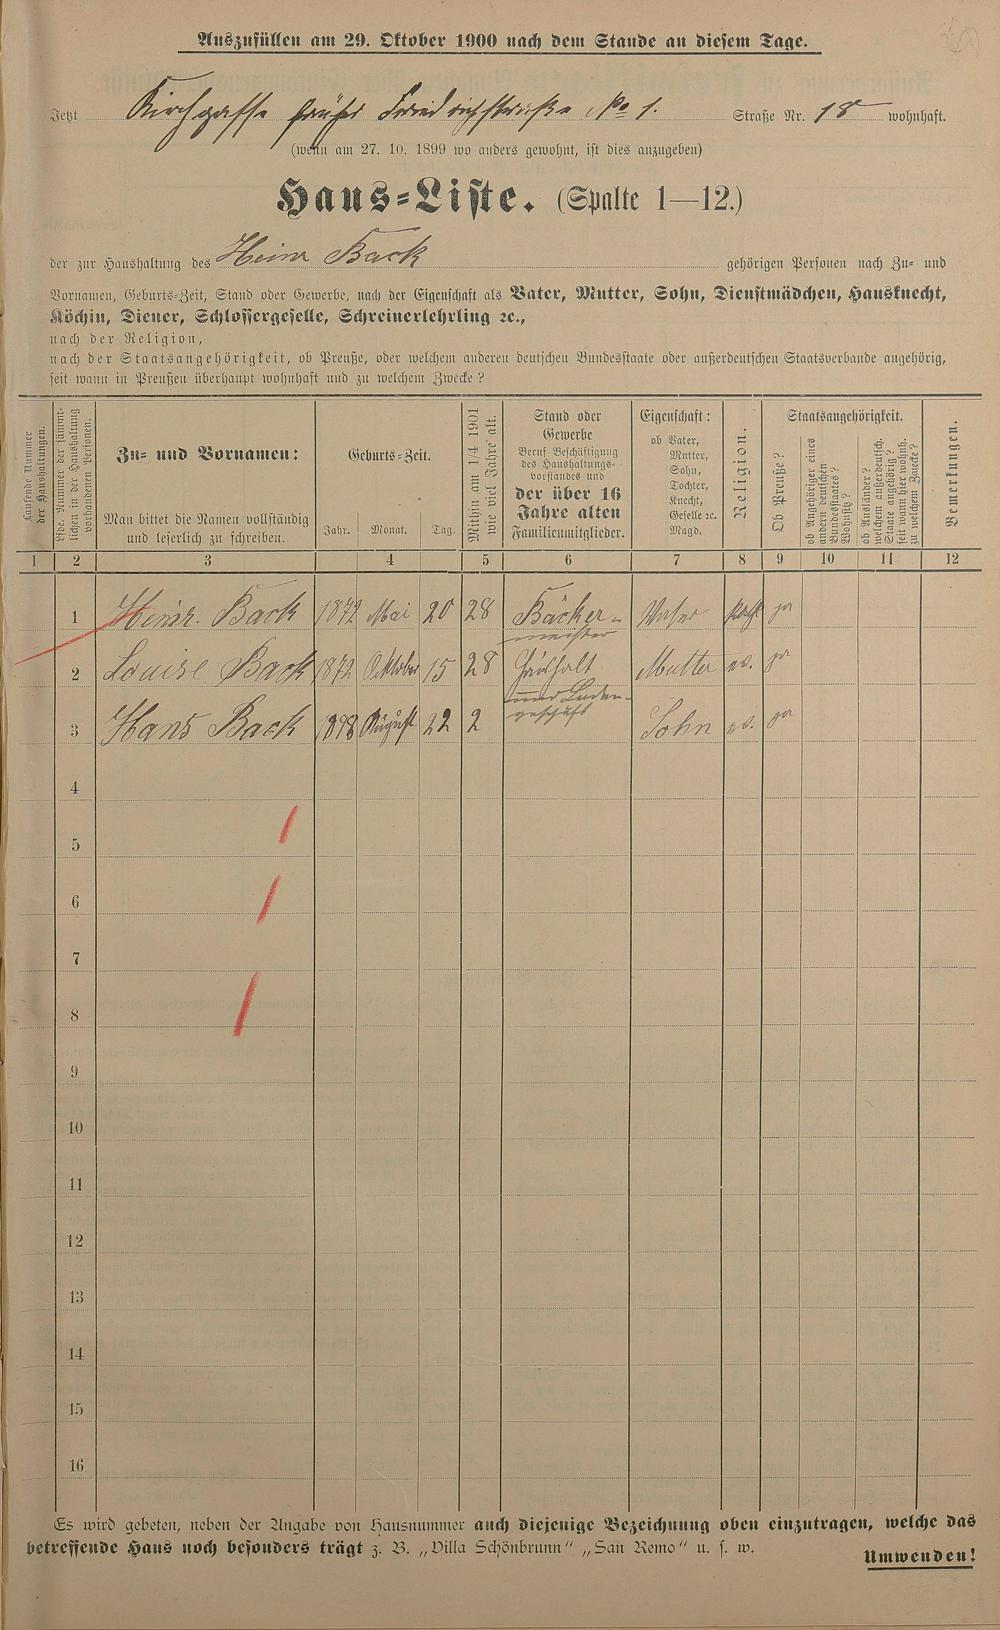 Auszufüllen am 29. Oktober 1900 nach dem Stande an diesem Tage.
Jetzt Kirchgasse früher Friedrichstraße No 1. Straße Nr. 18 wohnhaft.
(wenn am 27. 10. 1899 wo anders gewohnt, ist dies anzugeben)
Haus=Liste. (Spalte 1—12.)
der zur Haushaltung des Heinr Back gehörigen Personen nach Zu= und
Vornamen, Geburts=Zeit, Stand oder Gewerbe, nach der Eigenschaft als Vater, Mutter, Sohn, Dienstmädchen, Hausknecht,
Köchin, Diener, Schlossergeselle, Schreinerlehrling ꝛc.,
nach der Religion,
nach der Staatsangehörigkeit, ob Preuße, oder welchem anderen deutschen Bundesstaate oder außerdeutschen Staatsverbande angehörig,
seit wann in Preußen überhaupt wohnhaft und zu welchem Zwecke?
Laufende Nummer
der Haushaltungen.
Lfde. Nummer der sämmt=
lichen in der Haushaltung
vorhandenen Personen.
Zu= und Vornamen:
Man bittet die Namen vollständig
und leserlich zu schreiben.
Geburts=Zeit.
Jahr. Monat. Tag.
Mithin am 1/4 1901
wie viel Jahre alt.
Stand oder
Gewerbe
Beruf Beschäftigung
des Haushaltungs=
vorstandes und
der über 16
Jahre alten
Familienmitglieder.
Eigenschaft:
ob Vater,
Mutter,
Sohn,
Tochter,
Knecht,
Geselle ꝛc.
Magd.
Religion.
Staatsangehörigkeit.
Ob Preuße?
ob Angehöriger eines
andern deutschen
Bundesstaates?
Wohnsitz?
ob Ausländer?
welchem außerdeutsch.
Staate angehörig?
seit wann hier wohnh.
zu welchem Zwecke?
Bemerkungen.
1 2 3 4 5 6 7 8 9 10 11 12
1 Heinr. Back 1872 Mai 20 28 Bäcker=
meister Vater ja
2 Louise Back 1872 Oktober 15 28 Haushalt
und Laden=
geschäft Mutter ev. ja
3 Hans Back 1898 August 22 2 Sohn ev. ja
4
5
6
7
8
9
10
11
12
13
14
15
16
Es wird gebeten, neben der Angabe von Hausnummer auch diejenige Bezeichnung oben einzutragen, welche das
betreffende Haus noch besonders trägt z. B. „Villa Schönbrunn“ „San Remo“ u. s. w.
Umwenden!